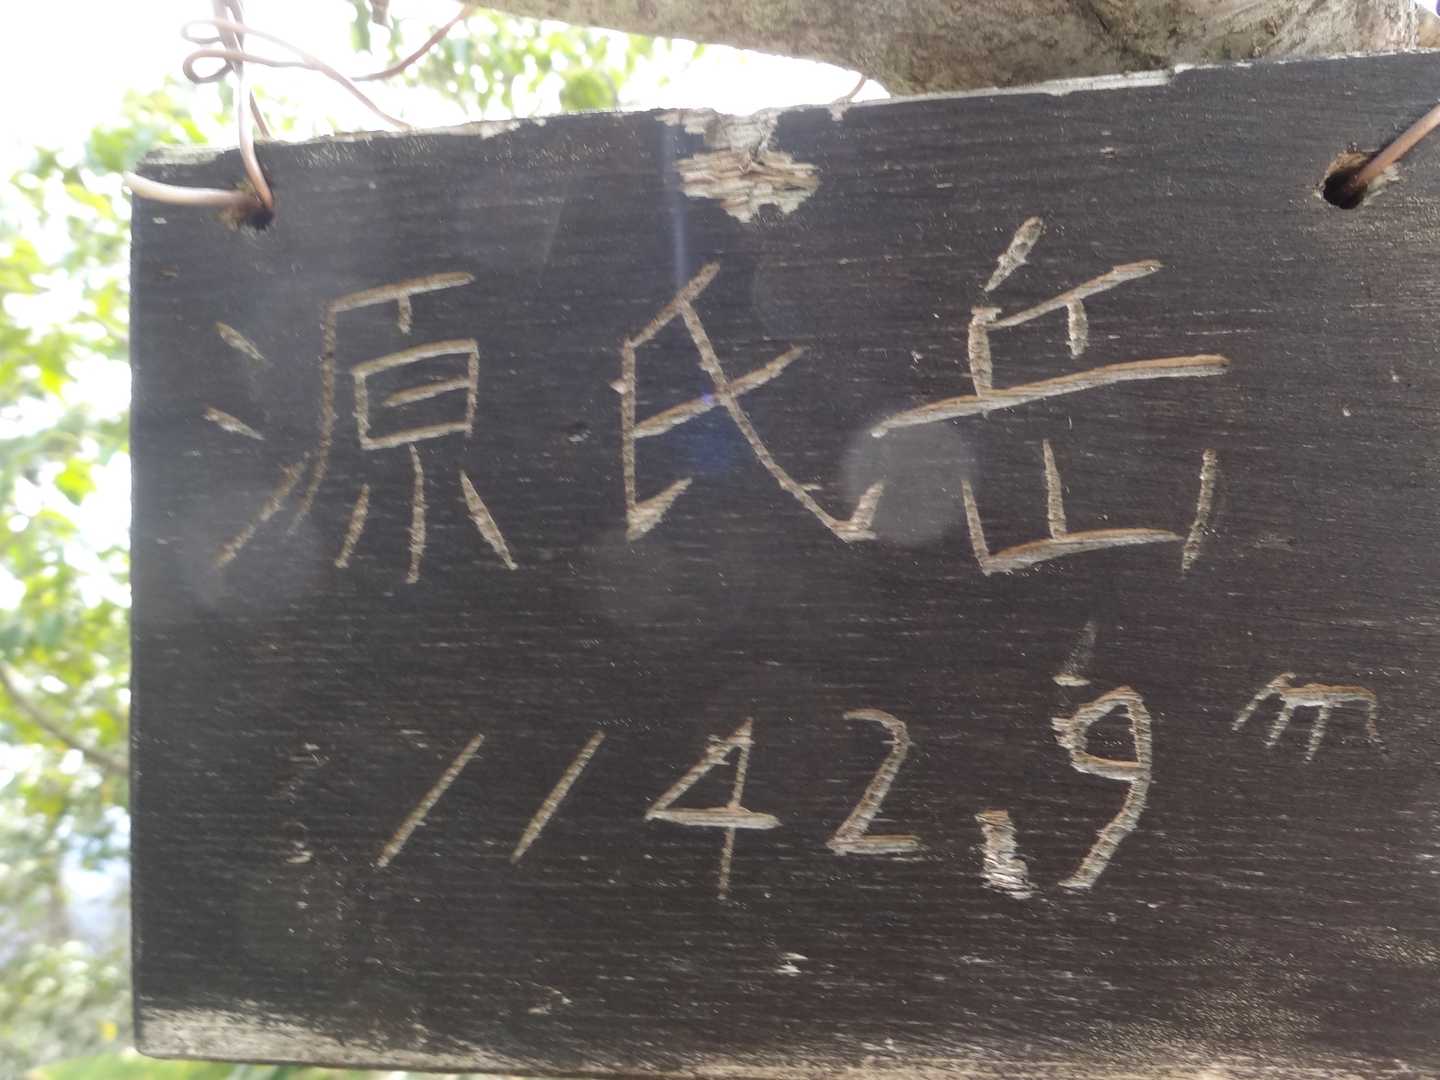 源氏岳
1142.9m